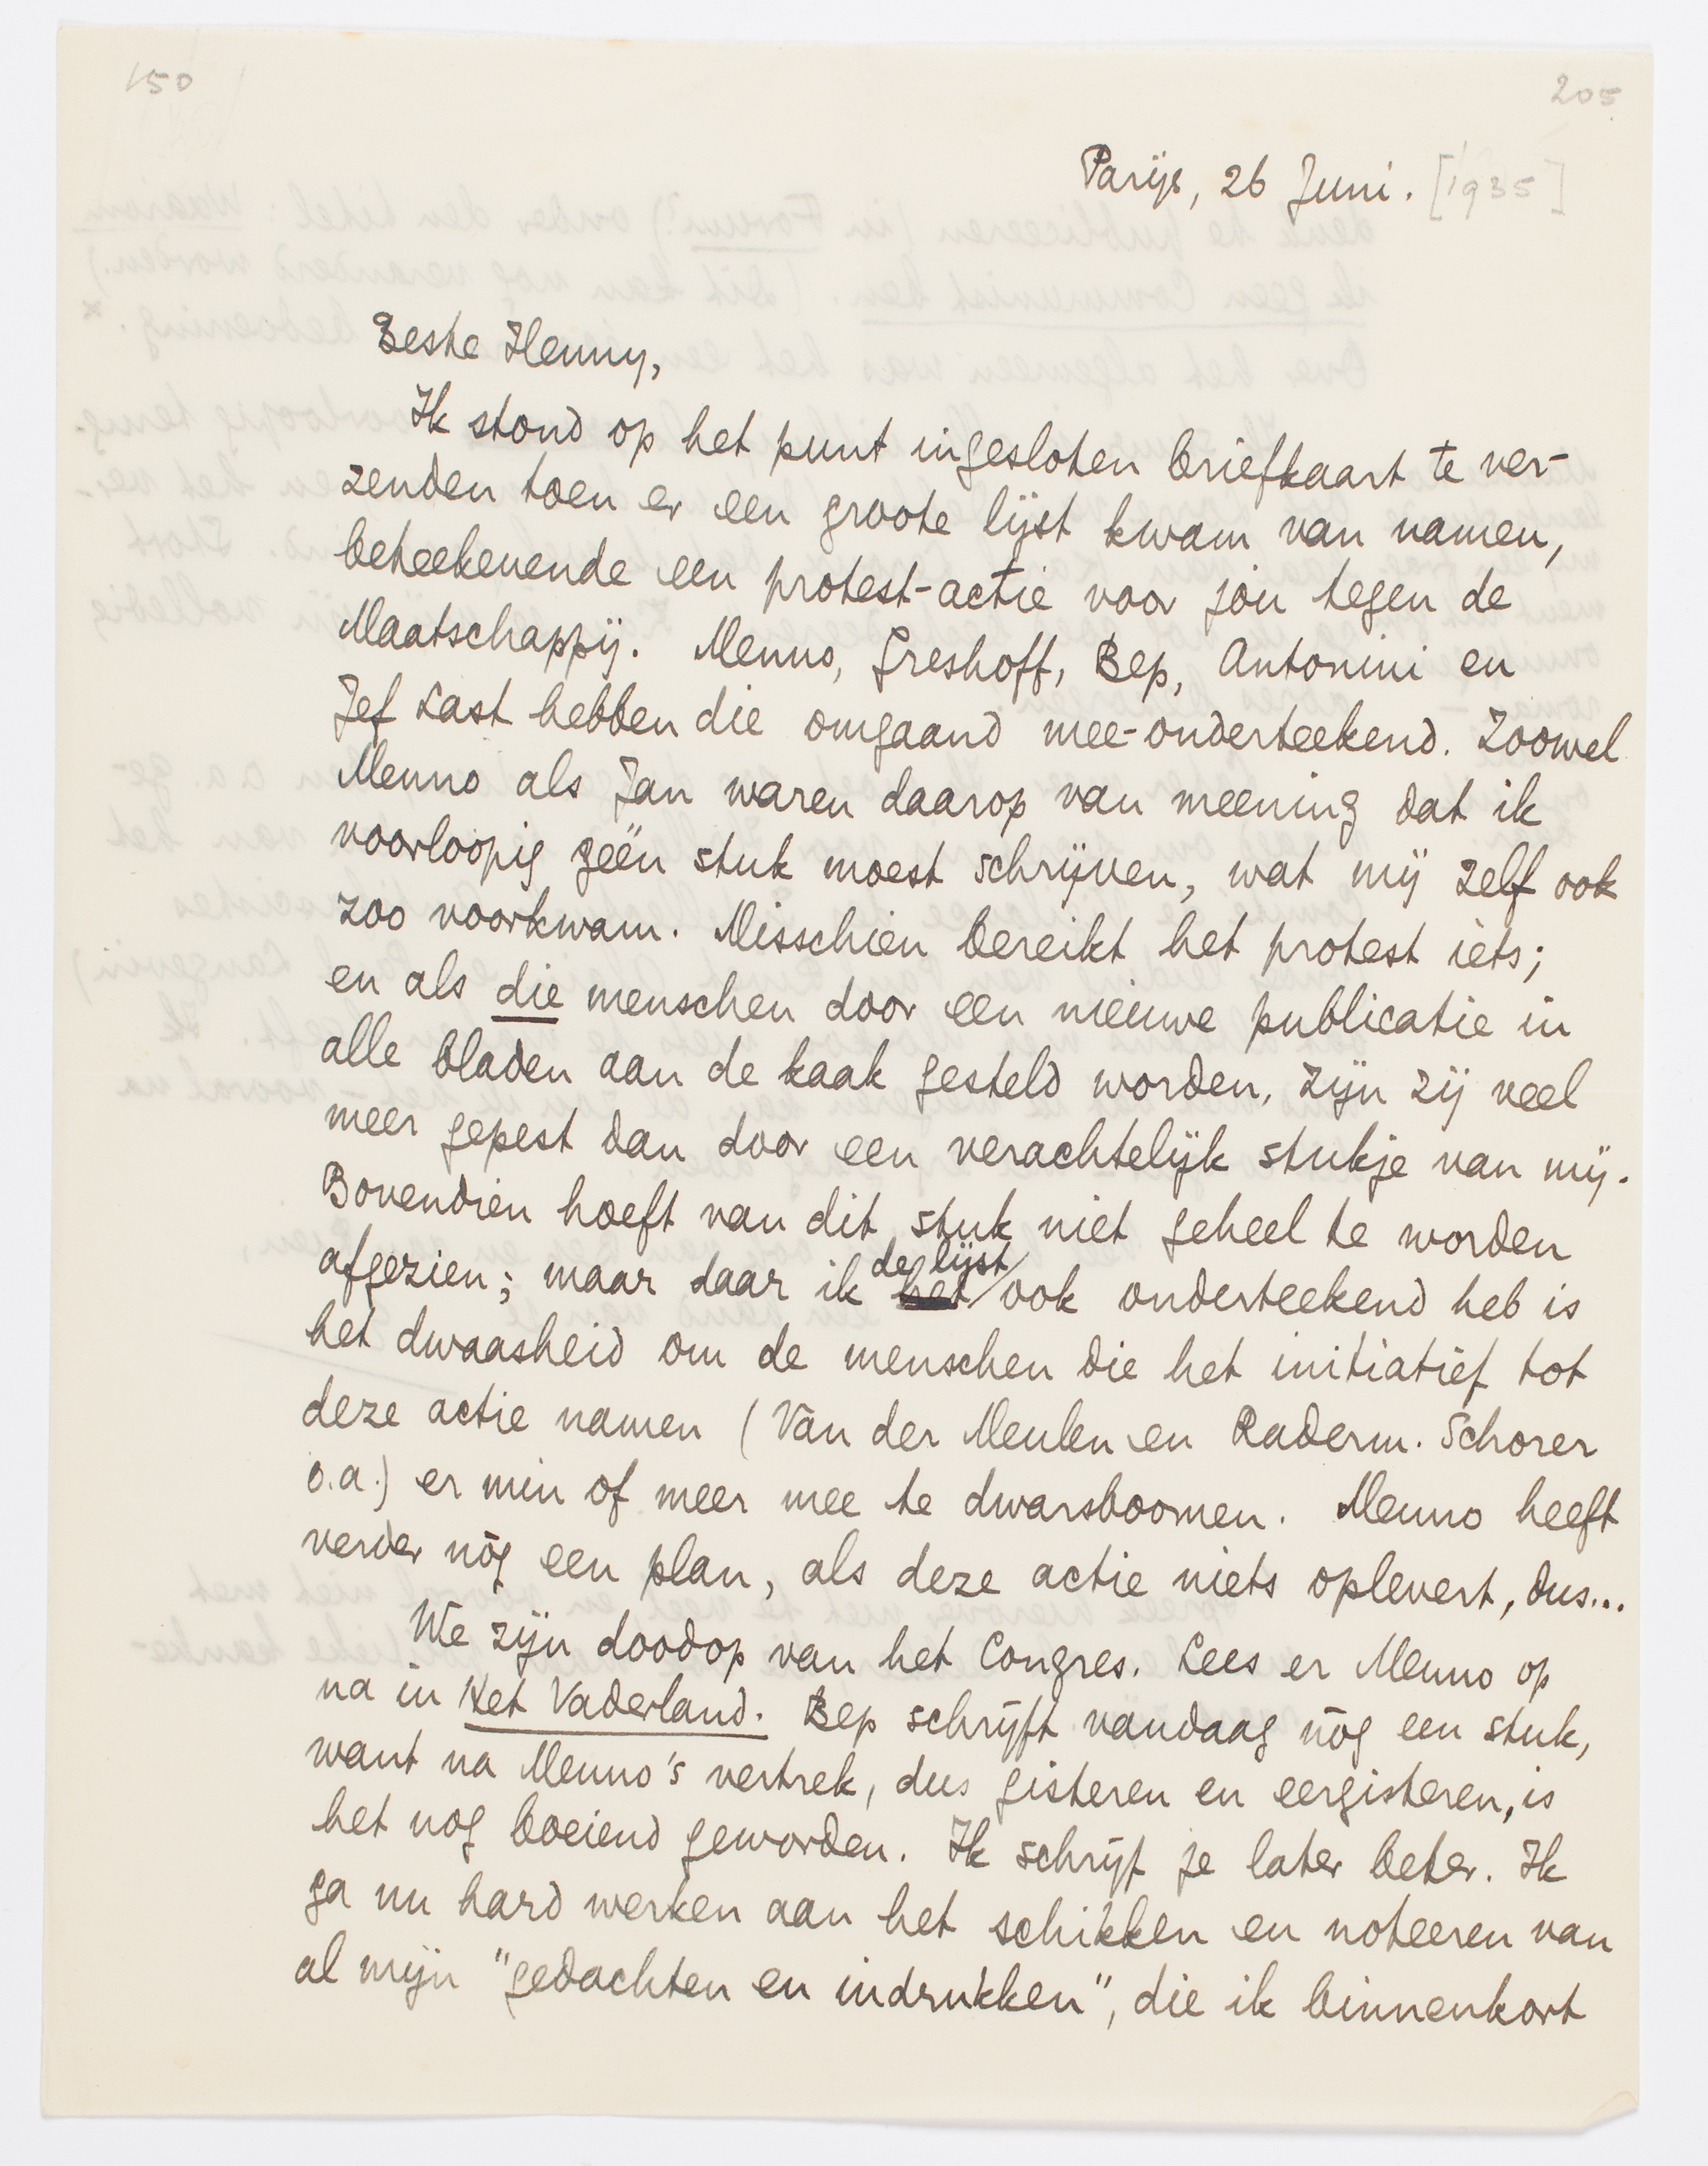 150
205
Parijs, 26 Juni. [1935]
Beste Henny,
Ik stond op het punt ingesloten briefkaart te ver-
zenden toen er een groote lijst kwam van namen,
beteekenende een protest-actie voor jóu tegen de
Maatschappij. Menno, Greshoff, Bep, Antonini en
Jef Last hebben die omgaand mee-onderteekend. Zoowel
Menno als Jan waren daarop van meening dat ik
voorloopig géén stuk moest schrijven, wat mij zelf ook
zoo voorkwam. Misschien bereikt het protest iets;
en als die menschen door een nieuwe publicatie in
alle bladen aan de kaak gesteld worden, zijn zij veel
meer gepest dan door een verachtelijk stukje van mij.
Bovendien hoeft van dit stuk niet geheel te worden
afgezien; maar daar ik het de lijst ook onderteekend heb is
het dwaasheid om de menschen die het initiatief tot
deze actie namen (Van der Meulen en Raderm. Schorer
o.a.) er min of meer mee te dwarsboomen. Menno heeft
verder nòg een plan, als deze actie niets oplevert, dus...
We zijn doodop van het Congres. Lees er Menno op
na in Het Vaderland. Bep schrijft vandaag nòg een stuk,
want na Menno's vertrek, dus gisteren en eergisteren, is
het nog boeiend geworden. Ik schrijf je later beter. Ik
ga nu hard werken aan het schikken en noteeren van
al mijn "gedachten en indrukken", die ik binnenkort